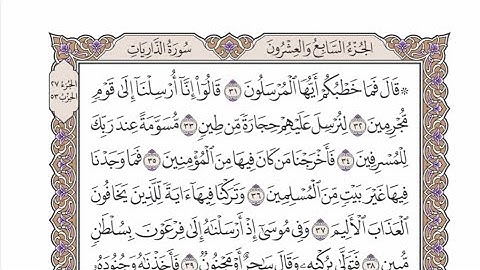 الجُزْءُ السَّابِعُ وَالعِشْرُونَ سُورَةُ الذَّارِيَاتِ
الجُزْءُ ٢٧
الحِزْبُ ٥٣
۞ قَالَ فَمَا خَطْبُكُمْ أَيُّهَا ٱلْمُرْسَلُونَ ٣١ قَالُوٓاْ إِنَّآ أُرْسِلْنَآ إِلَىٰ قَوْمٍ
مُّجْرِمِينَ ٣٢ لِنُرْسِلَ عَلَيْهِمْ حِجَارَةً مِّن طِينٍ ٣٣ مُّسَوَّمَةً عِندَ رَبِّكَ
لِلْمُسْرِفِينَ ٣٤ فَأَخْرَجْنَا مَن كَانَ فِيهَا مِنَ ٱلْمُؤْمِنِينَ ٣٥ فَمَا وَجَدْنَا
فِيهَا غَيْرَ بَيْتٍ مِّنَ ٱلْمُسْلِمِينَ ٣٦ وَتَرَكْنَا فِيهَآ ءَايَةً لِّلَّذِينَ يَخَافُونَ
ٱلْعَذَابَ ٱلْأَلِيمَ ٣٧ وَفِى مُوسَىٰٓ إِذْ أَرْسَلْنَٰهُ إِلَىٰ فِرْعَوْنَ بِسُلْطَٰنٍ
مُّبِينٍ ٣٨ فَتَوَلَّىٰ بِرُكْنِهِۦ وَقَالَ سَٰحِرٌ أَوْ مَجْنُونٌ ٣٩ فَأَخَذْنَٰهُ وَجُنُودَهُۥ